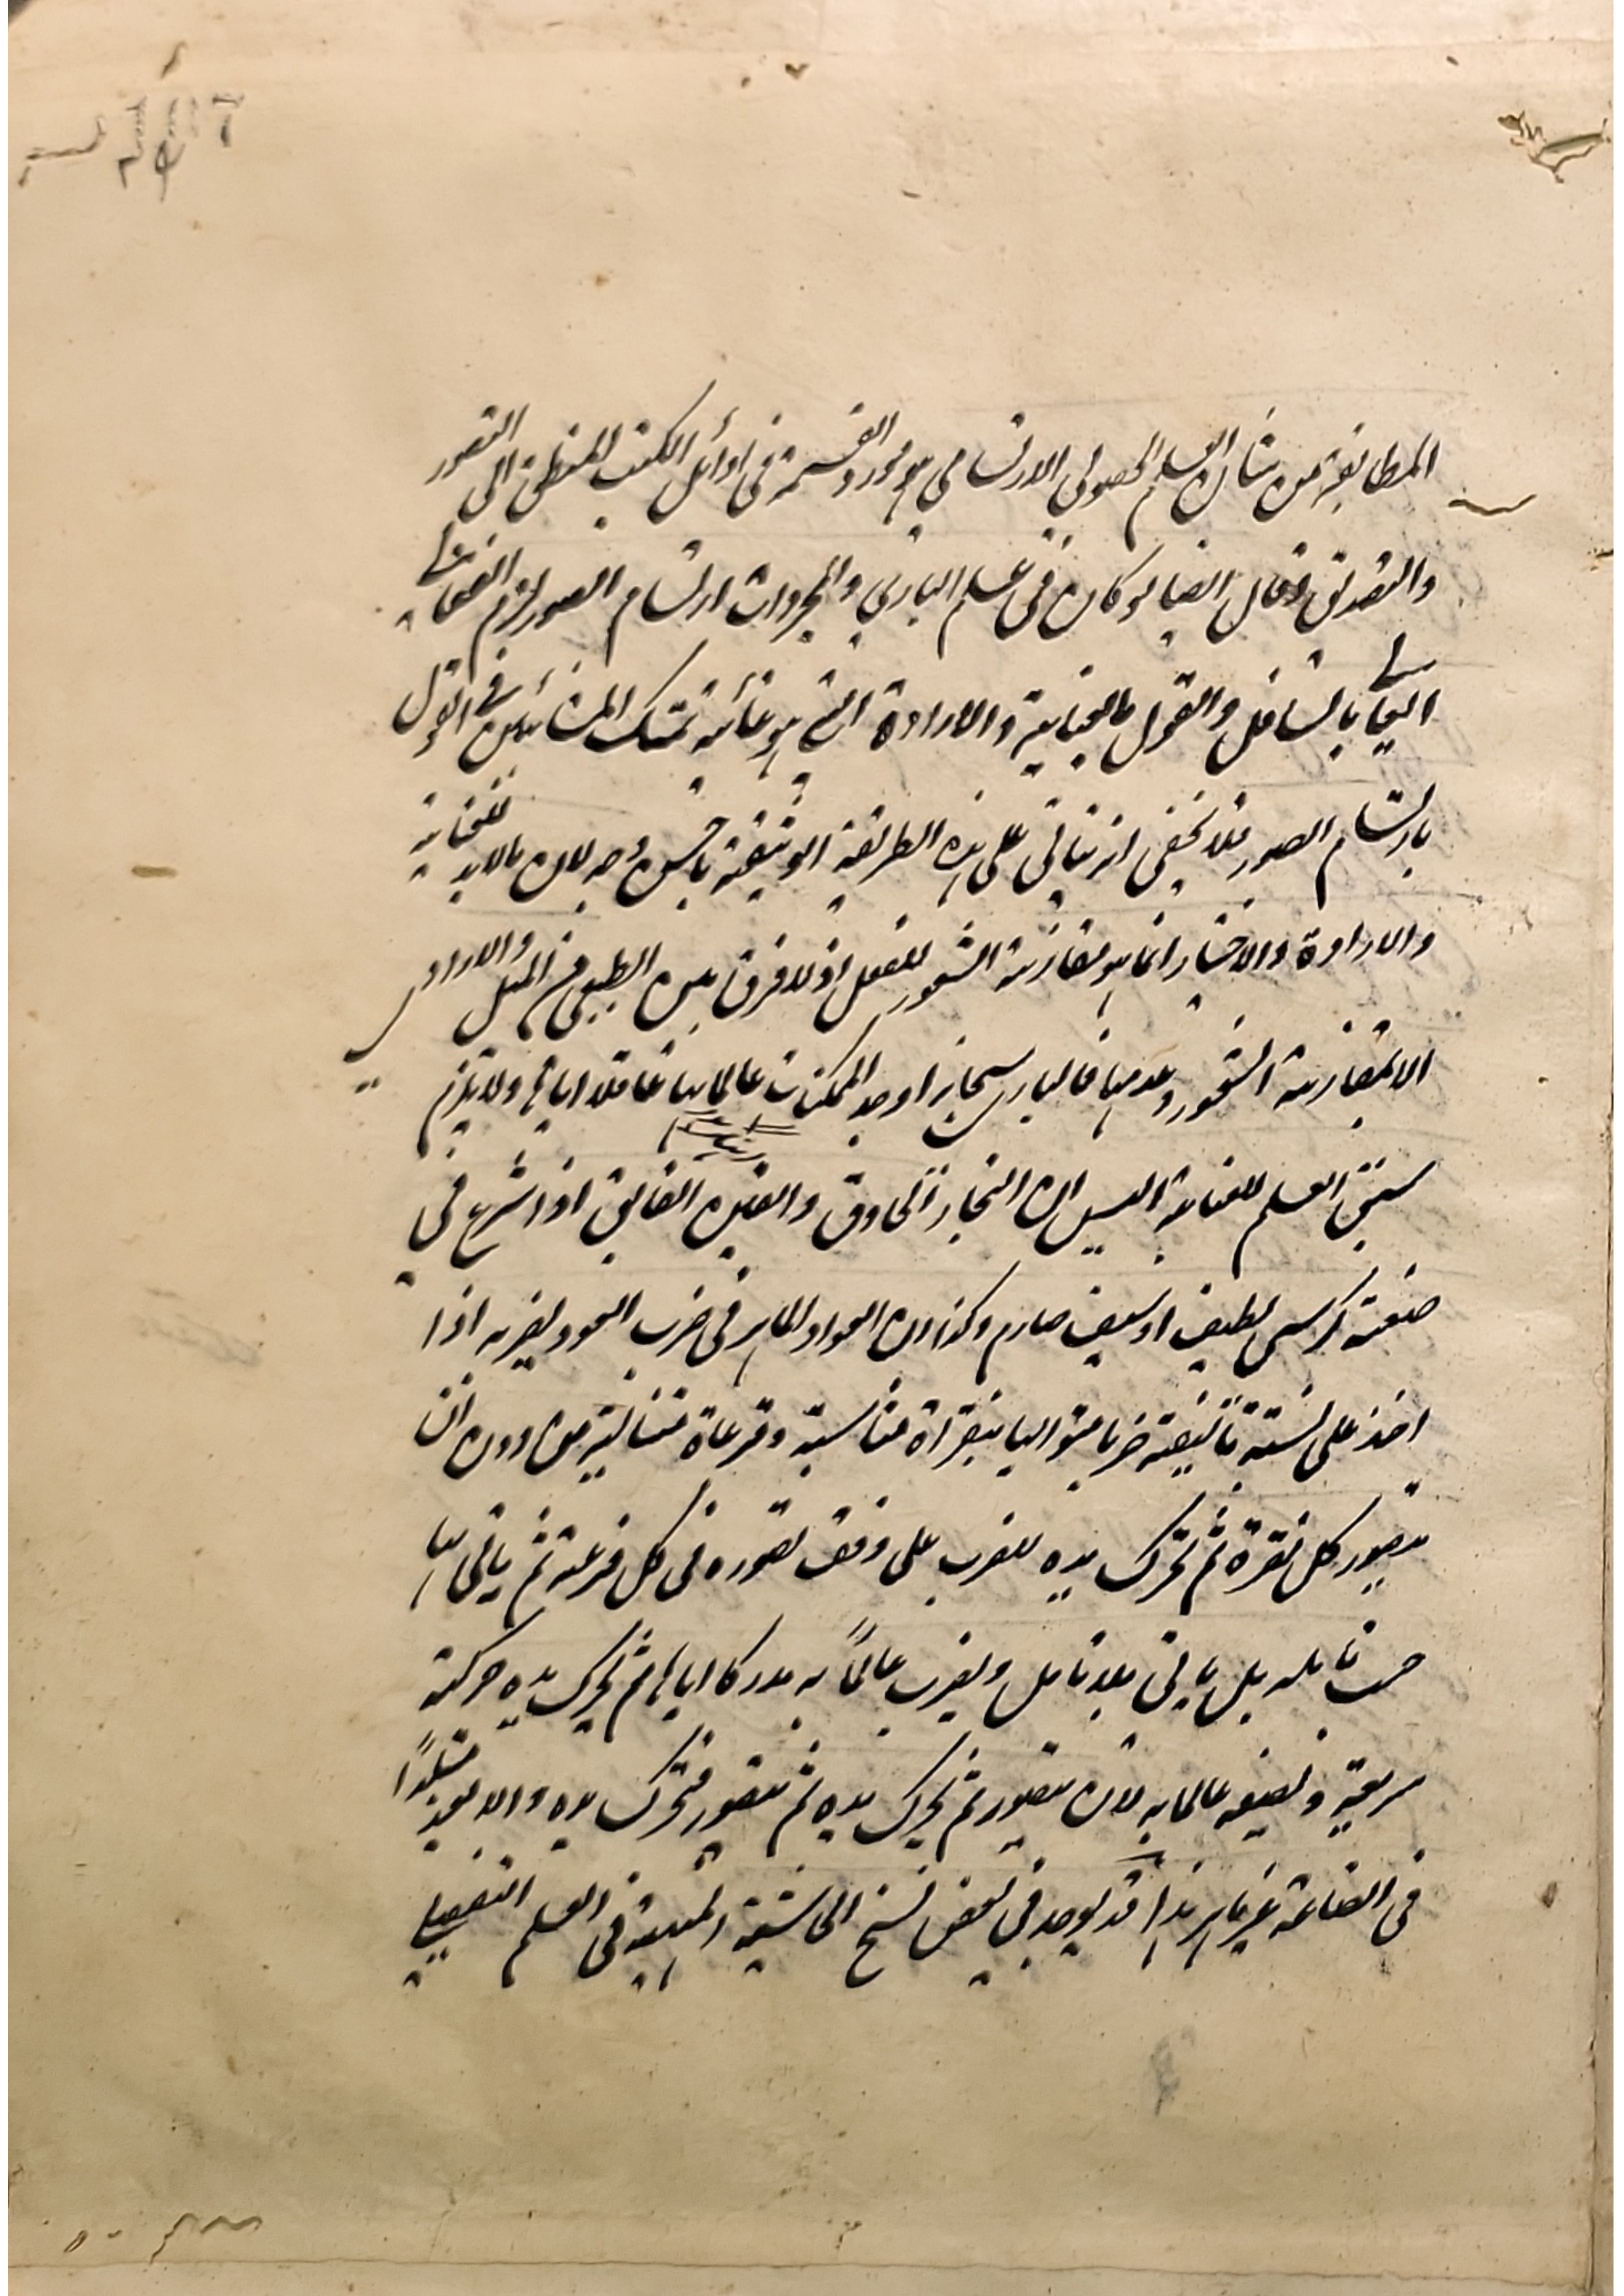 المطابقة من شان العلم الحصولي الارتسامي هو مورد القسمة في اوائل الكتب المنطق الى التصور
والتصديق وقال ايضا لو كان في علم الباري والمجردات ارتسام الصور لزم انفعال
العالي بالسافل والقول بالعناية والارادة التي هو غاية تمسك المشائين في القول
بارتسام الصور فلا يخفى انه يتاتى على هذه الطريقة الوثيقة باحسن وجه لان مالابد للعناية
والارادة والاختيار انما هو مقارنة الشعور للفعل اذ لا فرق بين الطبيعي في الميل والارادي
الا بمقارنة الشعور وعدمها فالباري سبحانه اوجد الممكنات عالما بها عاقلا اياها ولا يلزم
سبق العلم للعناية اليس ان النجار الحاذق والقين الفايق اذا شرع في
صنعة كرسي لطيف او سيف صارم وكذا ان العواد الماهر في ضرب العود يضربه اذا
اخذ على نسبة تاليفية ضربا متواليا بنقراة متناسبة وقرعاة متتالية من دون ان
يتصور كل نقرة ثم تحرك يده للضرب على وفق تصوره في كل قرعة ثم ياتي بها
حسب تامله بل ياتي بلا تامل ويضرب عالمًا به مدركا اياها ثم تحرك يده حركة
سريعة ويصنعه عالما به لا ان يتصور ثم تحرك يده ثم يتصور فتحرك يده والا يعد متبلدًا
في الصناعة غير ماهر هذا قد يوجد في بعض نسخ الحاشية المنهية في العلم التفصيلي